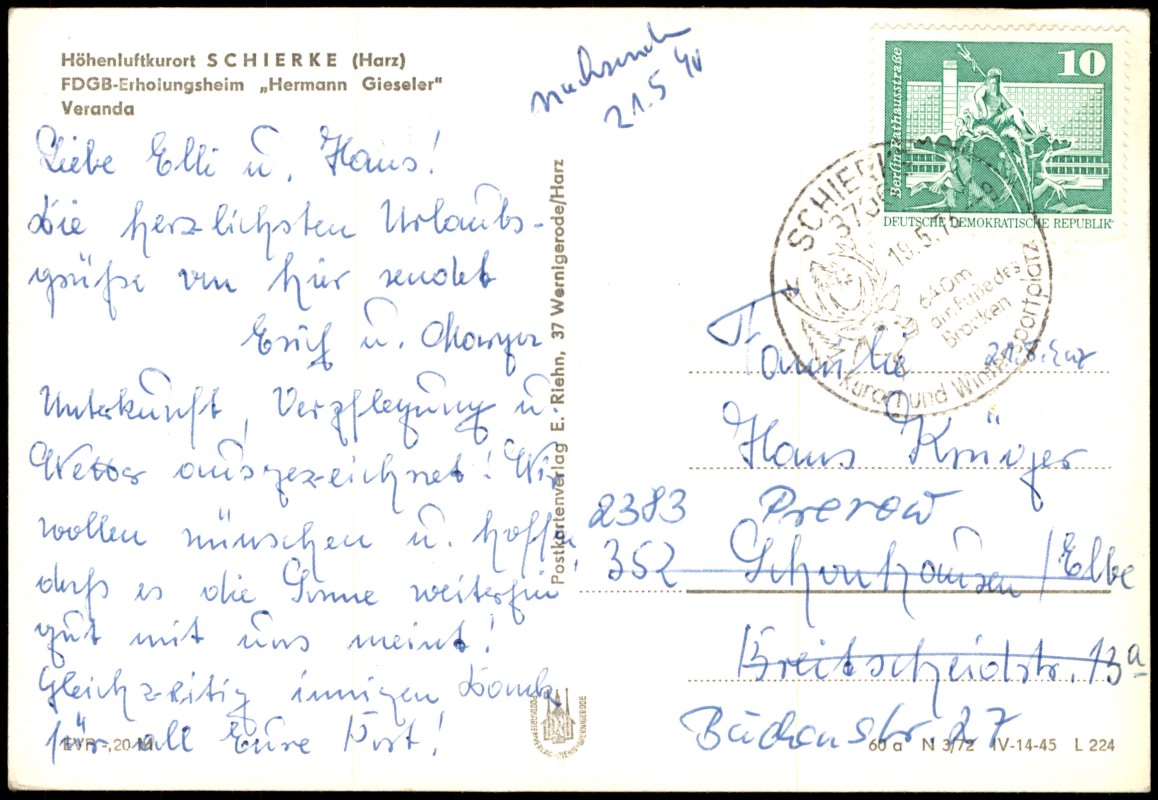 Höhenluftkurort SCHIERKE (Harz)
FDGB-Erholungsheim „Hermann Gieseler"
Veranda
Liebe Elli u. Hans!
Die herzlichsten Urlaubs-
grüße von hier sendet
Erich u.
Unterkunft, Verpflegung u.
Wetter ausgezeichnet! Wir
wollen wünschen u. hoffen
daß es die Sonne weiterhin
gut mit uns meint!
Gleichzeitig innigen Dank
für all Eure Post!
EVP -,20 M
nachsenden
21.5
Postkartenverlag E. Riehn, 37 Wernigerode/Harz
POSTKARTENVERLAG·RIEHN·WERNIGERODE
10
Berlin Rathausstraße
DEUTSCHE DEMOKRATISCHE REPUBLIK
SCHIERKE
19.5.
640m
am Fuße des
Brocken
Kurort und Wintersportplatz
Familie
Hans Krüger
2383 Prerow
352 Schönhausen/Elbe
Breitscheidstr. 13a
Buchenstr. 27
60 a N 3/72 IV-14-45 L 224